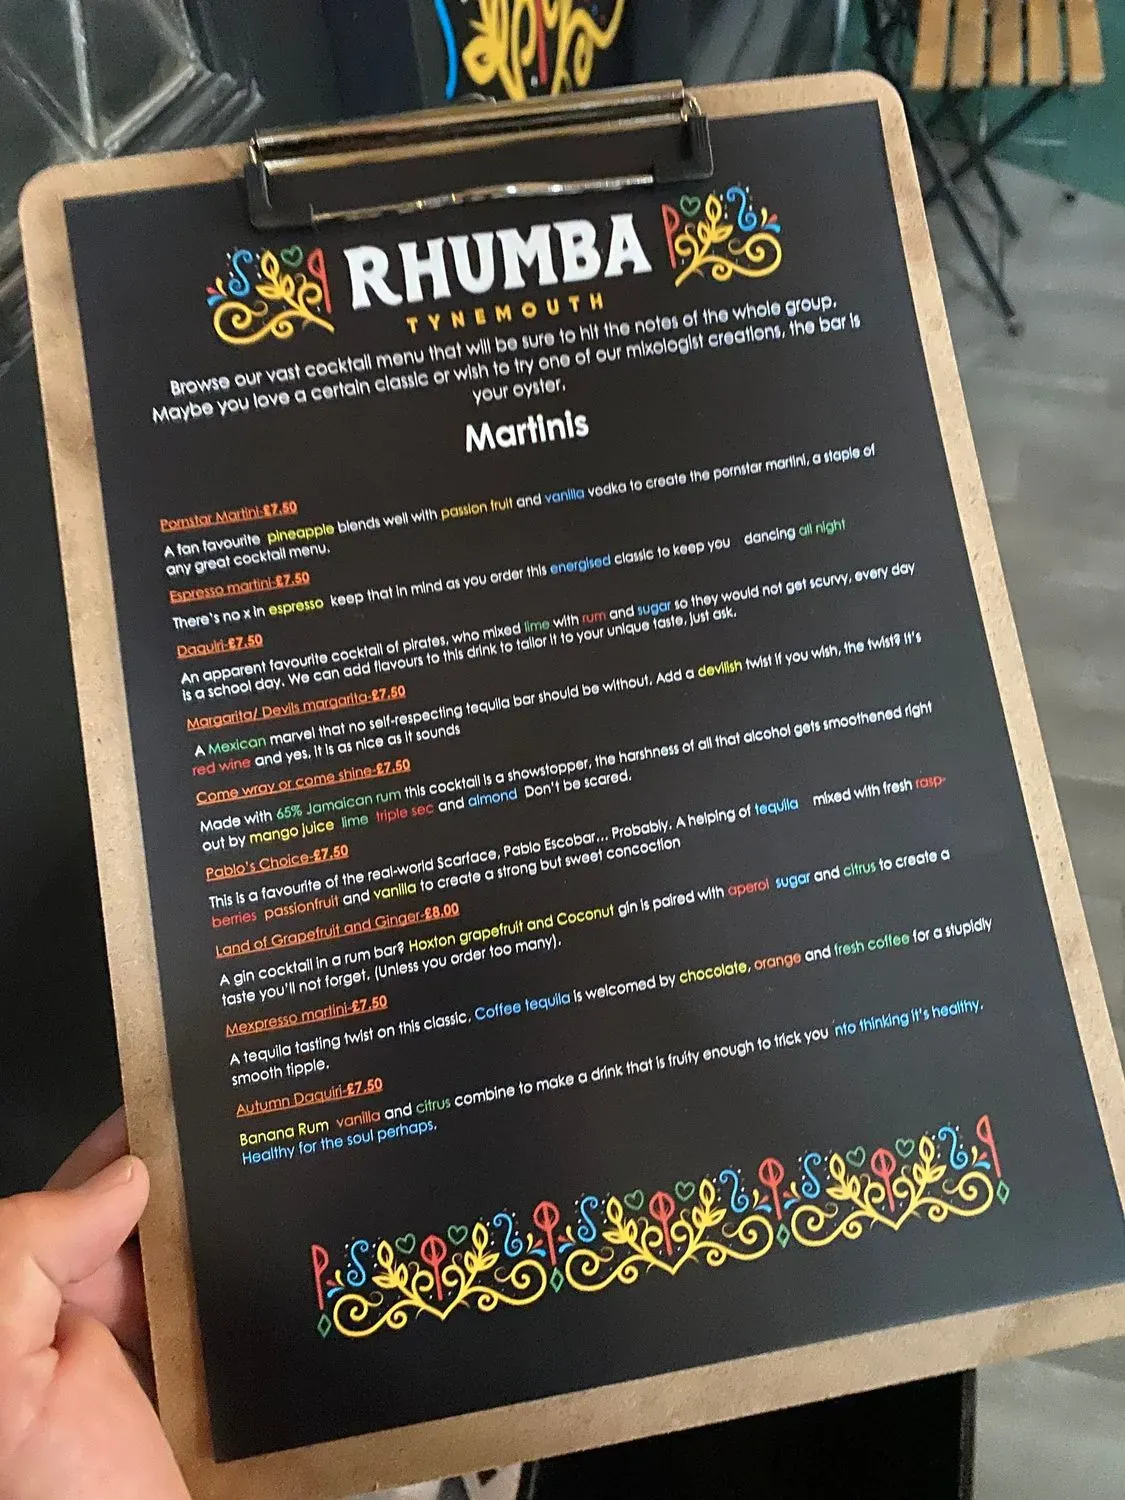 RHUMBA
TYNEMOUTH
Browse our vast cocktail menu that will be sure to hit the notes of the whole group.
Maybe you love a certain classic or wish to try one of our mixologist creations, the bar is
your oyster.
Martinis
Pornstar Martini-£7.50
A fan favourite pineapple blends well with passion fruit and vanilla vodka to create the pornstar martini, a staple of
any great cocktail menu.
Espresso martini-£7.50
There's no x in espresso keep that in mind as you order this energised classic to keep you dancing all night
Daquiri-£7.50
An apparent favourite cocktail of pirates, who mixed lime with rum and sugar so they would not get scurvy, every day
is a school day. We can add flavours to this drink to tailor it to your unique taste, just ask.
Margarita/ Devils margarita-£7.50
A Mexican marvel that no self-respecting tequila bar should be without. Add a devilish twist if you wish, the twist? It's
red wine and yes, it is as nice as it sounds
Come wray or come shine-£7.50
Made with 65% Jamaican rum this cocktail is a showstopper, the harshness of all that alcohol gets smoothened right
out by mango juice lime triple sec and almond Don't be scared.
Pablo's Choice-£7.50
This is a favourite of the real-world Scarface, Pablo Escobar... Probably. A helping of tequila mixed with fresh rasp-
berries passionfruit and vanilla to create a strong but sweet concoction
Land of Grapefruit and Ginger-£8.00
A gin cocktail in a rum bar? Hoxton grapefruit and Coconut gin is paired with aperol sugar and citrus to create a
taste you'll not forget. (Unless you order too many).
Mexpresso martini-£7.50
A tequila tasting twist on this classic, Coffee tequila is welcomed by chocolate, orange and fresh coffee for a stupidly
smooth tipple.
Autumn Daquiri-£7.50
Banana Rum vanilla and citrus combine to make a drink that is fruity enough to trick you nto thinking it's healthy.
Healthy for the soul perhaps.